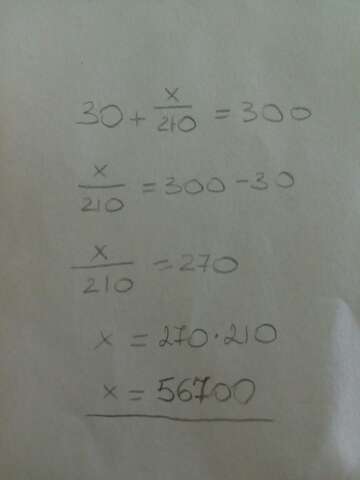 30 + x/210 = 300
x/210 = 300 - 30
x/210 = 270
x = 270 · 210
x = 56700